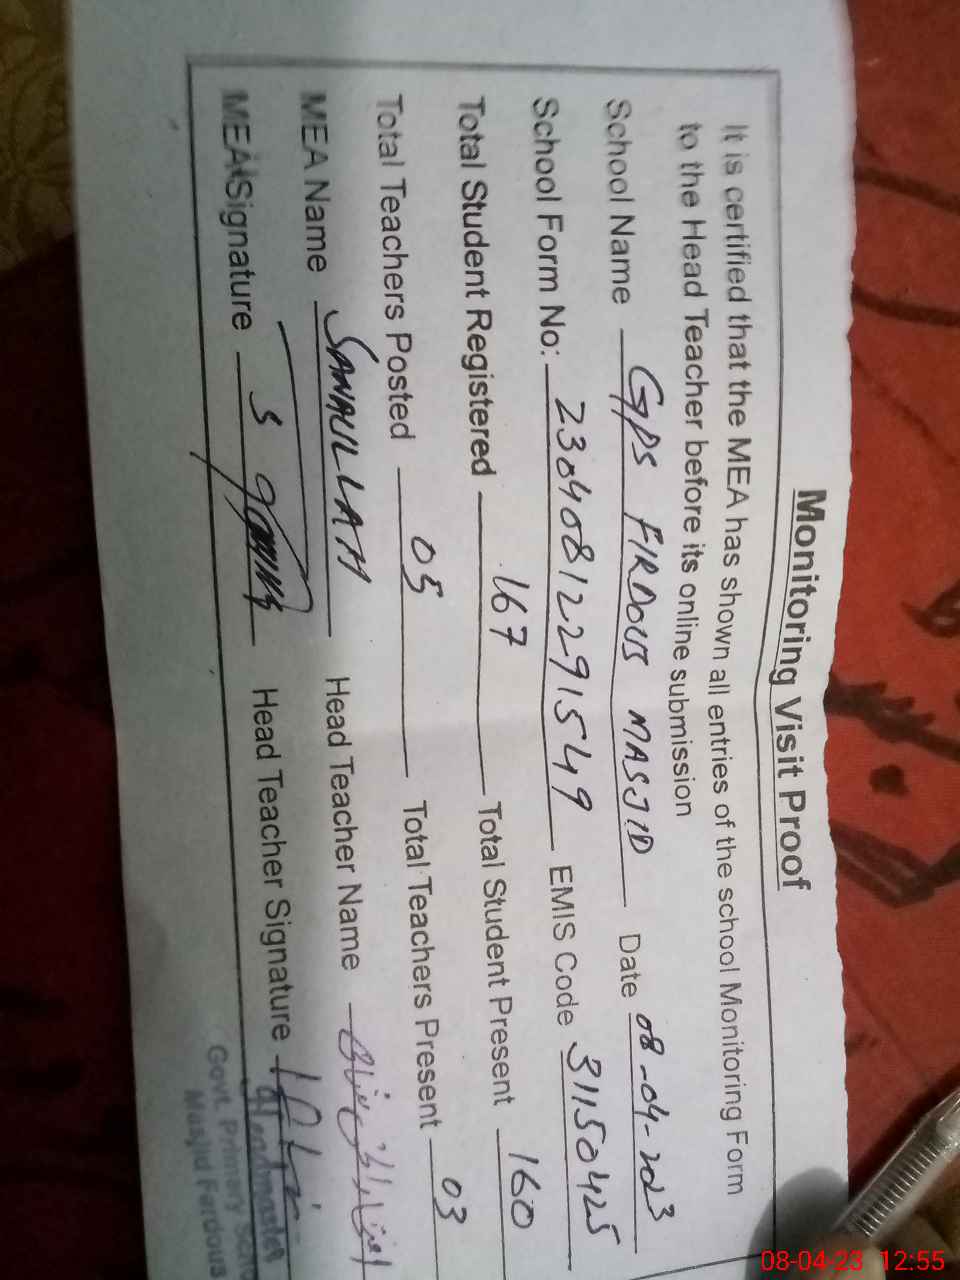 Monitoring Visit Proof
It is certified that the MEA has shown all entries of the school Monitoring Form
to the Head Teacher before its online submission
School Name GPS FIRDOUS MASJID Date 08-04-2023
School Form No: 230408122915 49 EMIS Code 31150425
Total Student Registered 167 Total Student Present 160
Total Teachers Posted 05 Total Teachers Present 03
MEA Name SANAULLAH Head Teacher Name
MEA Signature Head Teacher Signature
Headmaster
Govt. Primary School
Masjid Fardous
08-04-23 12:55